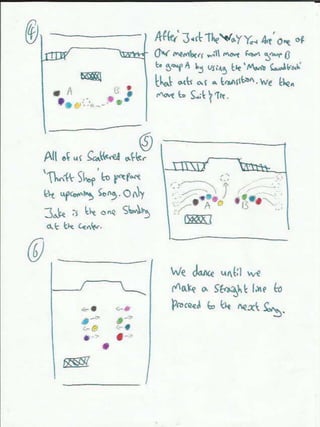 4
After 'Just The Way You Are' one of
Our members will move from group B
to group A by using the 'Mario Soundtrack'
that acts as a transition. We then
move to Suit & Tie.
A
B
5
All of us Scattered after
'Thrift Shop' to prepare
the upcoming Song. Only
Jake is the one Standing
at the Center.
A
B
6
We dance until we
Make a Straight line to
Proceed to the next Song.